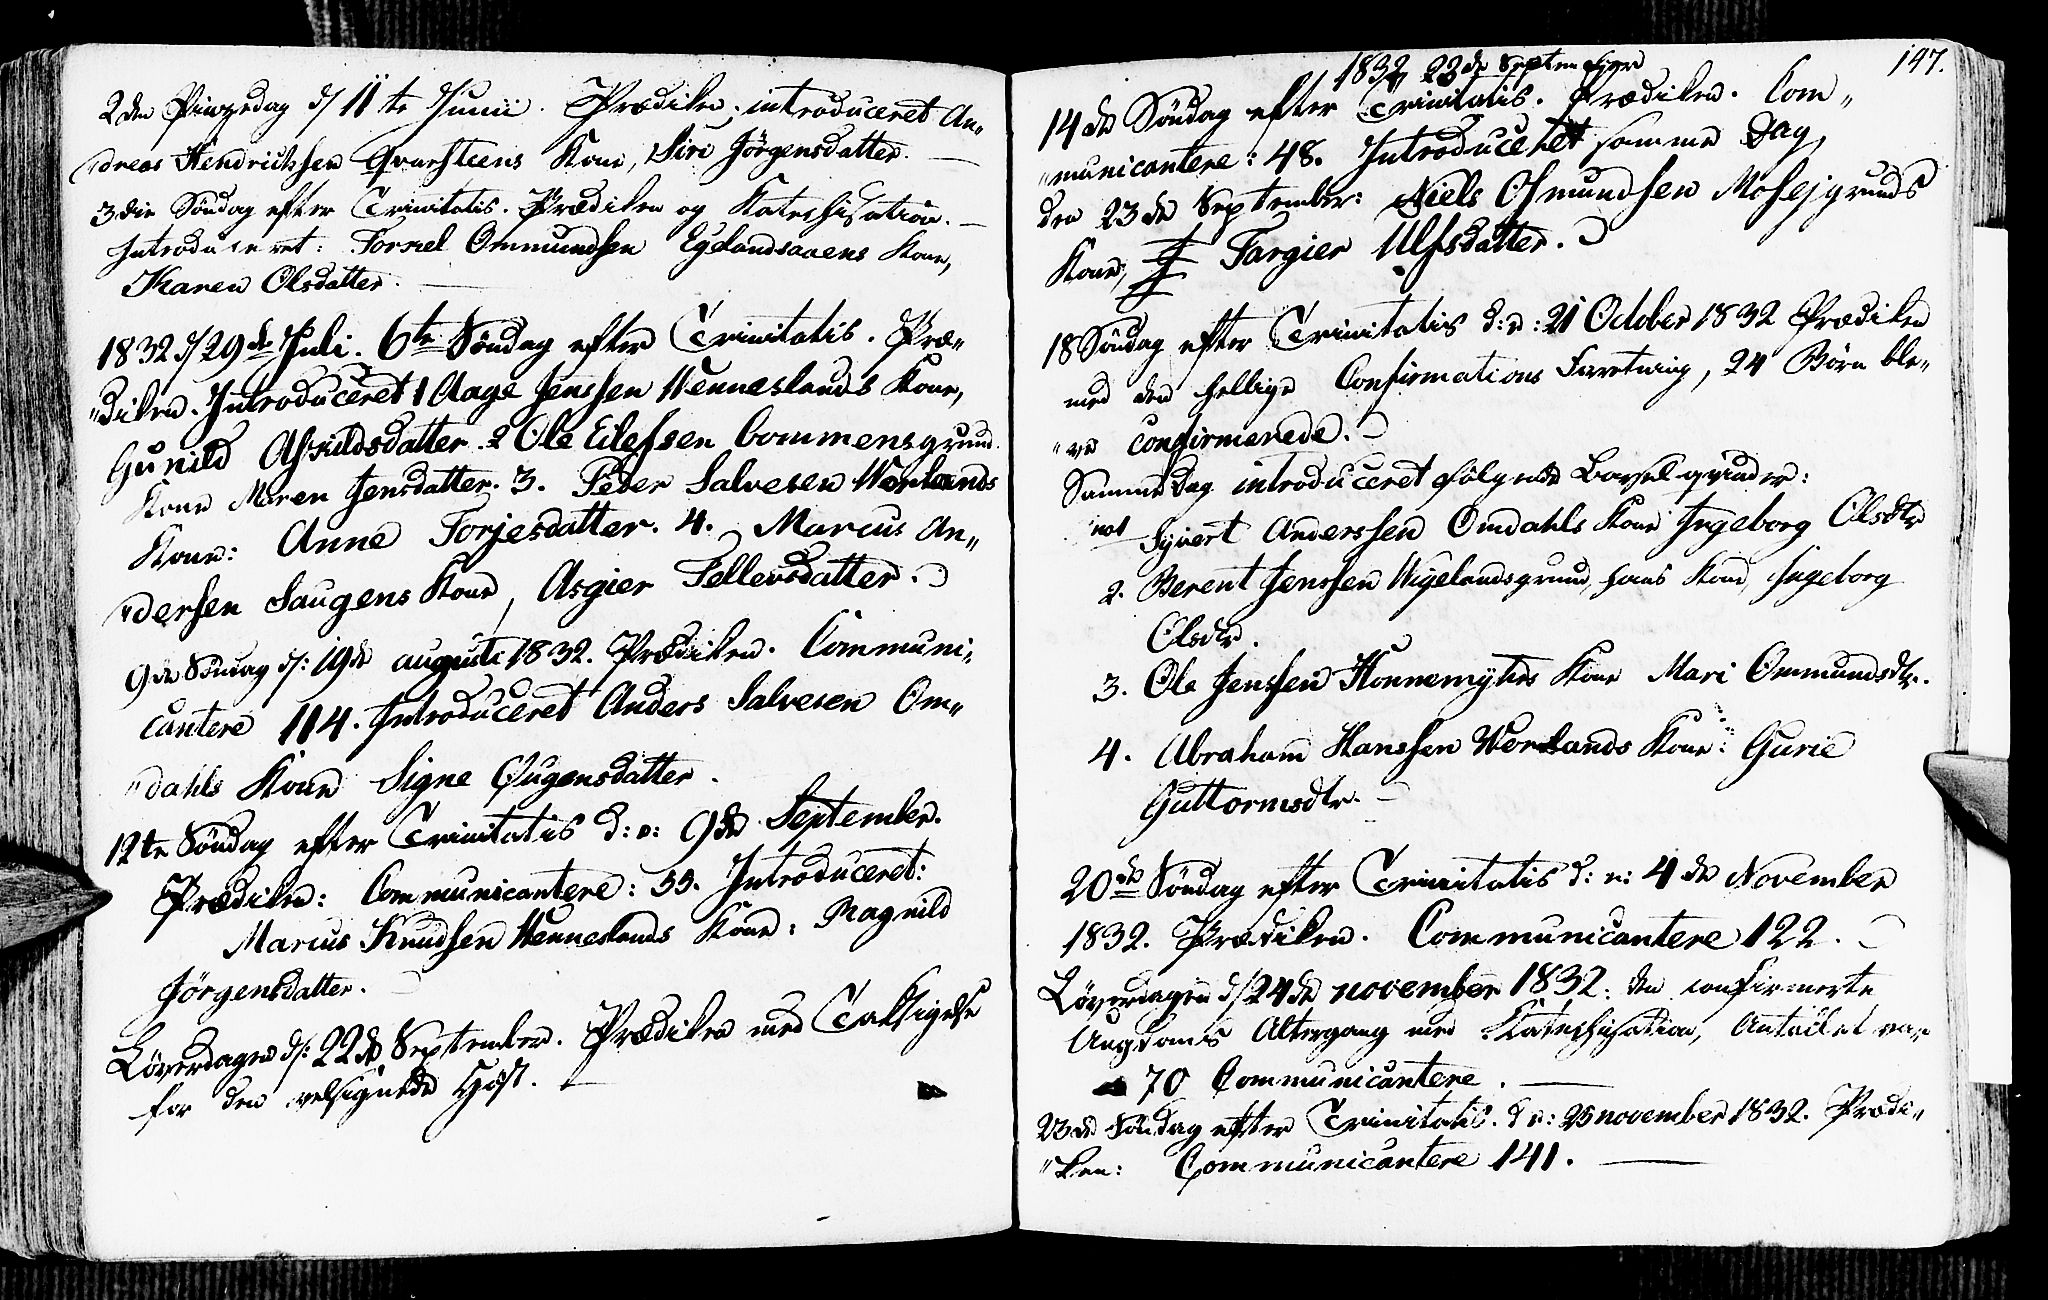 2den Pinzedag d/ 11te Junii. Prædiken; introduceret An„
„dreas Hendrichsen Qvarsteens Kone, Siri Jörgensdatter. —
3die Söndag efter Trinitatis. Prædiken og Katechisation. —
Introduceret: Torkel Ommundsen Egelandsaaens Kone,
Karen Olsdatter. —
1832 d/ 29de Juli. 6te Söndag efter Trinitatis. Præ„
„diken. Introduceret 1 Aage Jenssen Wenneslands Kone,
Gunild Askildsdatter. 2 Ole Eilefsen Bommensgrund
Kone Maren Jensdatter. 3. Peder Salvesen Werlands
Kone: Anne Torjesdatter. 4. Marcus An„
„dersen Haugens Kone, Asgier Tellevsdatter.
9de Söndag d: 19de augusti 1832. Prædiken. Communi„
cantere 114. Introduceret Anders Salvesen Om„
„dahls Kone Signe Øugensdatter.
12te Söndag efter Trinitatis d: e: 9de September.
Prædiken: Communicantere: 55. Introduceret:
Marcus Knudsen Wenneslands Kone: Ragnild
Jörgensdatter.
Löverdagen d: 22de September. Prædiken med Taksigelse
for den velsignede Høst. —
1832 23de September 147.
14de Söndag efter Trinitatis. Prædiken. Com„
„municantere: 48. Introduceret samme Dag
den 23de September: Niels Osmundsen Moseigrunds
Kone, Targier Ulfsdatter.
18 Söndag efter Trinitatis d: e: 21 October 1832 Prædiken
med den hellige Confirmations Forretning, 24 Börn ble„
„ve confirmerede.
Samme Dag introduceret følgende Barselqvinder:
no1 Syvert Anderssen Omdahls Kone Ingeborg Olsdtr
2. Berent Jenssen Wigelandsgrund, hans Kone, Ingeborg
Olsdtr.
3. Ole Jenssen Honnemyhrs Kone Mari Ommundsdtr.
4. Abraham Hanssen Werlands Kone: Gurie
Guttormsdtr. —
20de Söndag efter Trinitatis d: e: 4de November
1832. Prædiken. Communicantere 122.
Löverdagen d/ 24de november 1832. den confirmerte
Ungdoms Altergang med Katechisation, Antallet var
70 Communicantere. —
23de Söndag efter Trinitatis. d e: 25 november 1832. Prædi„
„ken: Communicantere 141. —